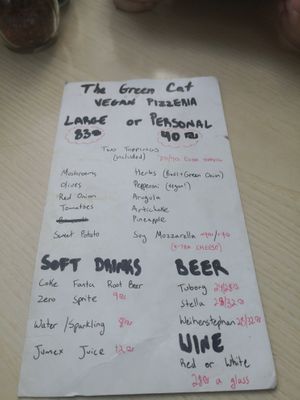 The Green Cat
VEGAN PIZZERIA
LARGE or PERSONAL
83₪ 40₪
Two Toppings
(included)
Mushrooms Herbs (Basil+Green Onion)
Olives Pepperoni (vegan!)
Red Onion Arugula
Tomatoes Artichoke
Pineapple
Sweet Potato Soy Mozzarella
CHEESE)
SOFT DRINKS BEER
Coke Fanta Root Beer Tuborg 24/28₪
Zero Sprite 9₪ Stella 28/32₪
Water/Sparkling 8₪ Weihenstephan 28/32₪
WINE
Jumex Juice 12₪ Red or White
28₪ a glass